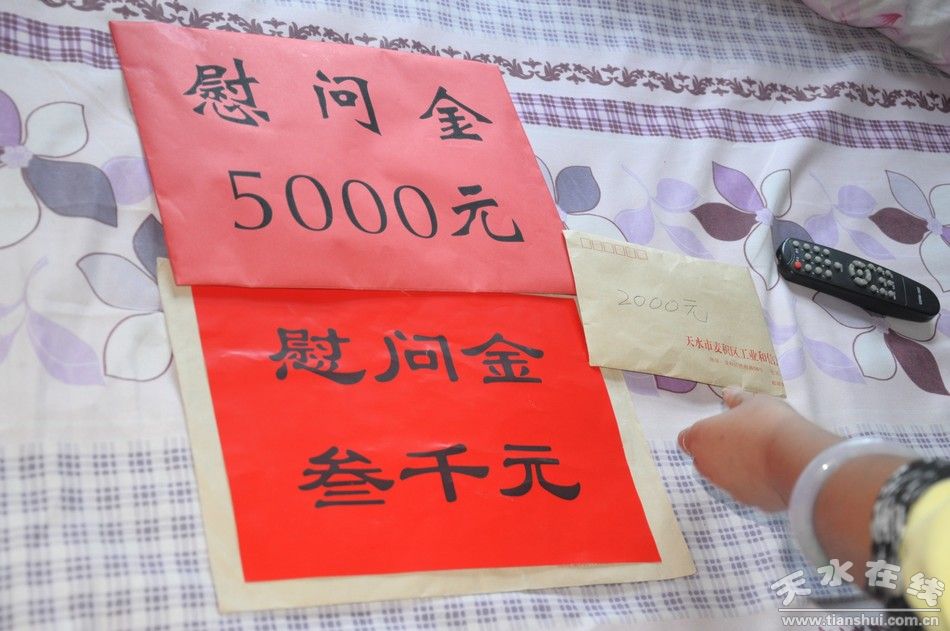 慰问金
5000元
慰问金
叁千元
2000元
天水市麦积区工业和信
天水在线
www.tianshui.com.cn